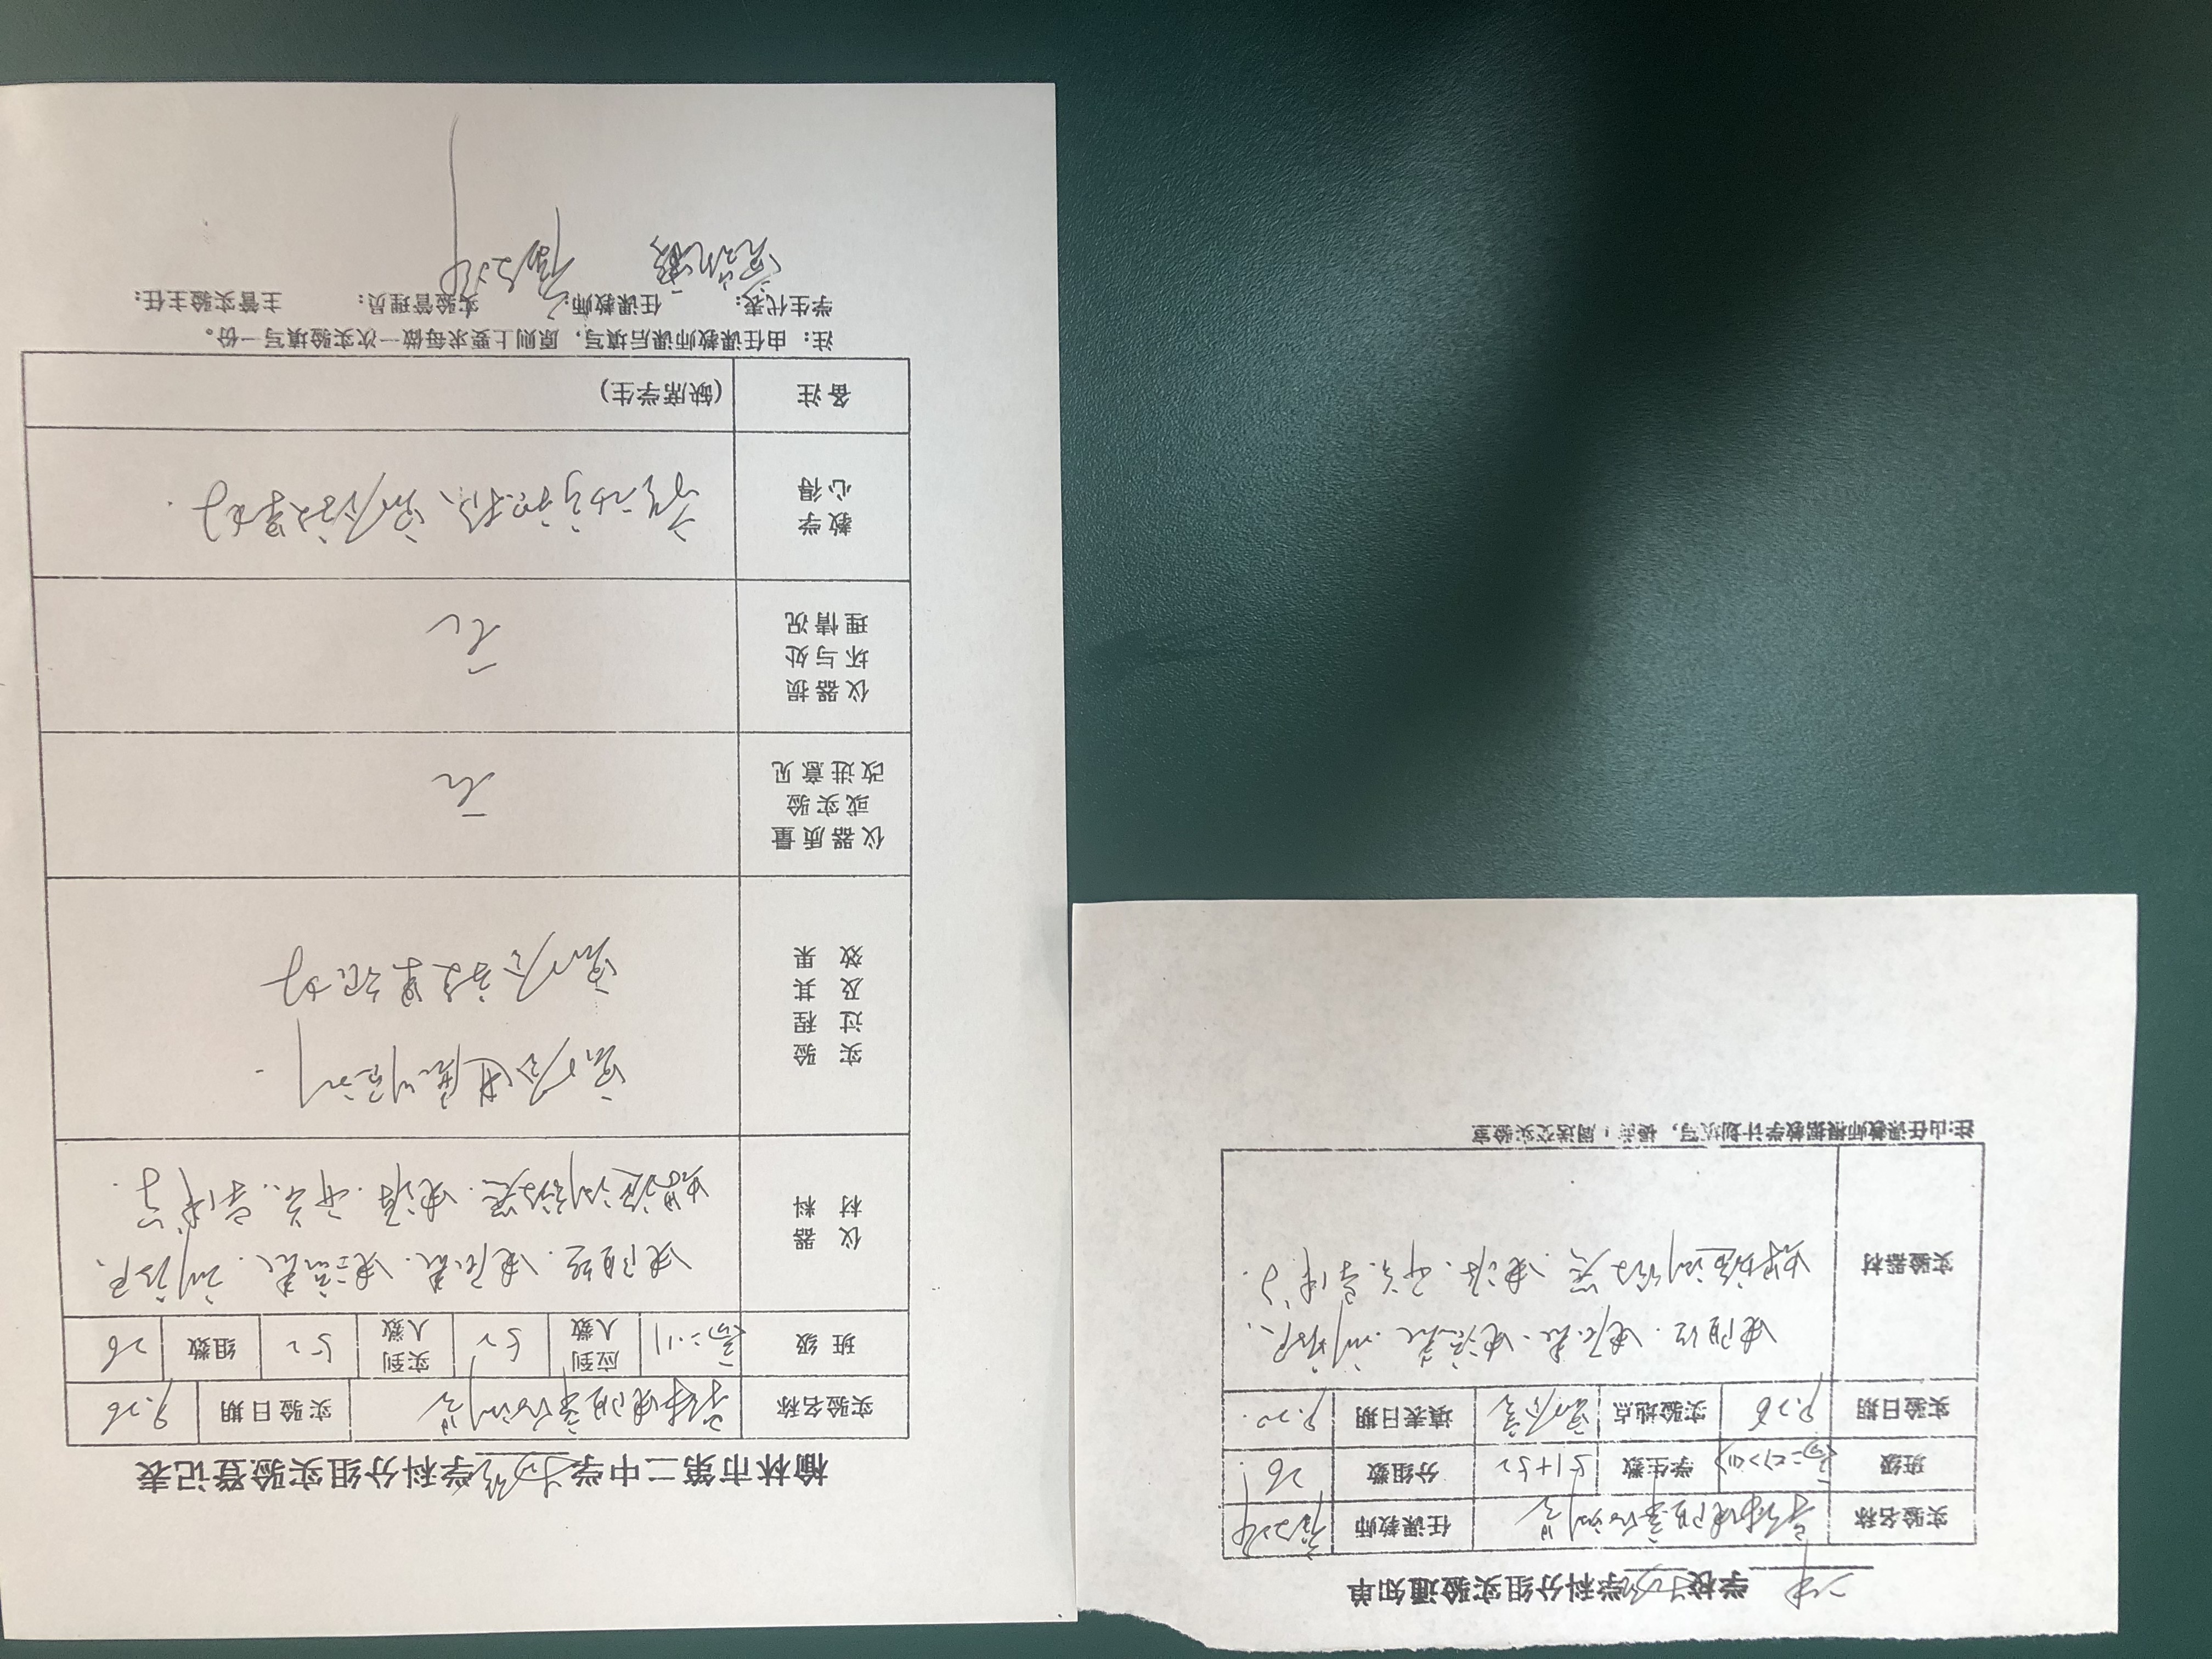 二中 学校 物理 学科分组实验通知单
实验名称 导体电阻率的测量 任课教师
班级 高二(7)(11) 学生数 51+52 分组数 26
实验日期 9.26 实验地点 实验室 填表日期 9.20
实验器材 电阻丝、电压表、电流表、刻度尺、
螺旋测微器、电源、开关、导线等.
注:由任课教师根据教学计划填写,提前1周送交实验室
榆林市第二中学 物理 学科分组实验登记表
实验名称 导体电阻率的测量 实验日期 9.26
班级 高二11 应到人数 52 实到人数 52 组数 26
仪器材料 电阻丝、电压表、电流表、刻度尺、
螺旋测微器、电源、开关、导线等.
实验过程及其效果 实验进展顺利.
实验效果很好
仪器质量或实验改进意见 无
仪器损坏与处理情况 无
教学心得 实验效果好.
备注 (缺席学生)
注:由任课教师课后填写,原则上要求每做一次实验填写一份。
学生代表: 任课教师: 实验管理员: 主管实验主任: